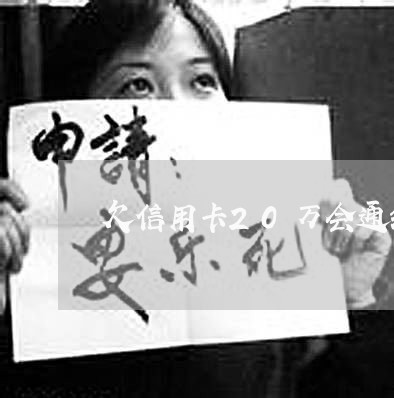 申請：
欠信用卡20万会通
安乐死